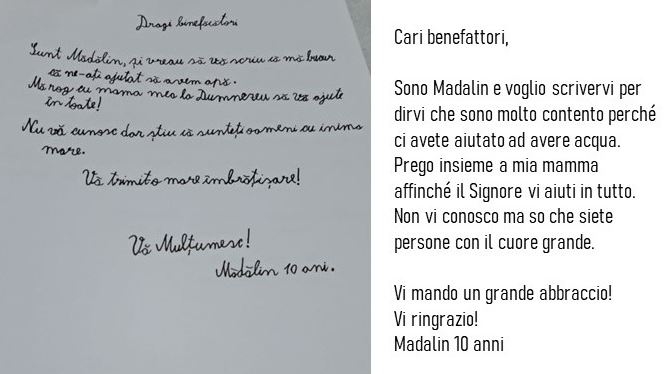 Dragi binefăcători
Sunt Mădălin, și vreau să vă scriu că mă bucur
că ne-ați ajutat să avem apă.
Mă rog cu mama mea la Dumnezeu să vă ajute
în toate!
Nu vă cunosc dar știu că sunteți oameni cu inimo
mare.
Vă trimit o mare îmbrățișare!
Vă Mulțumesc!
Mădălin 10 ani.
Cari benefattori,
Sono Madalin e voglio scrivervi per
dirvi che sono molto contento perché
ci avete aiutato ad avere acqua.
Prego insieme a mia mamma
affinché il Signore vi aiuti in tutto.
Non vi conosco ma so che siete
persone con il cuore grande.
Vi mando un grande abbraccio!
Vi ringrazio!
Madalin 10 anni